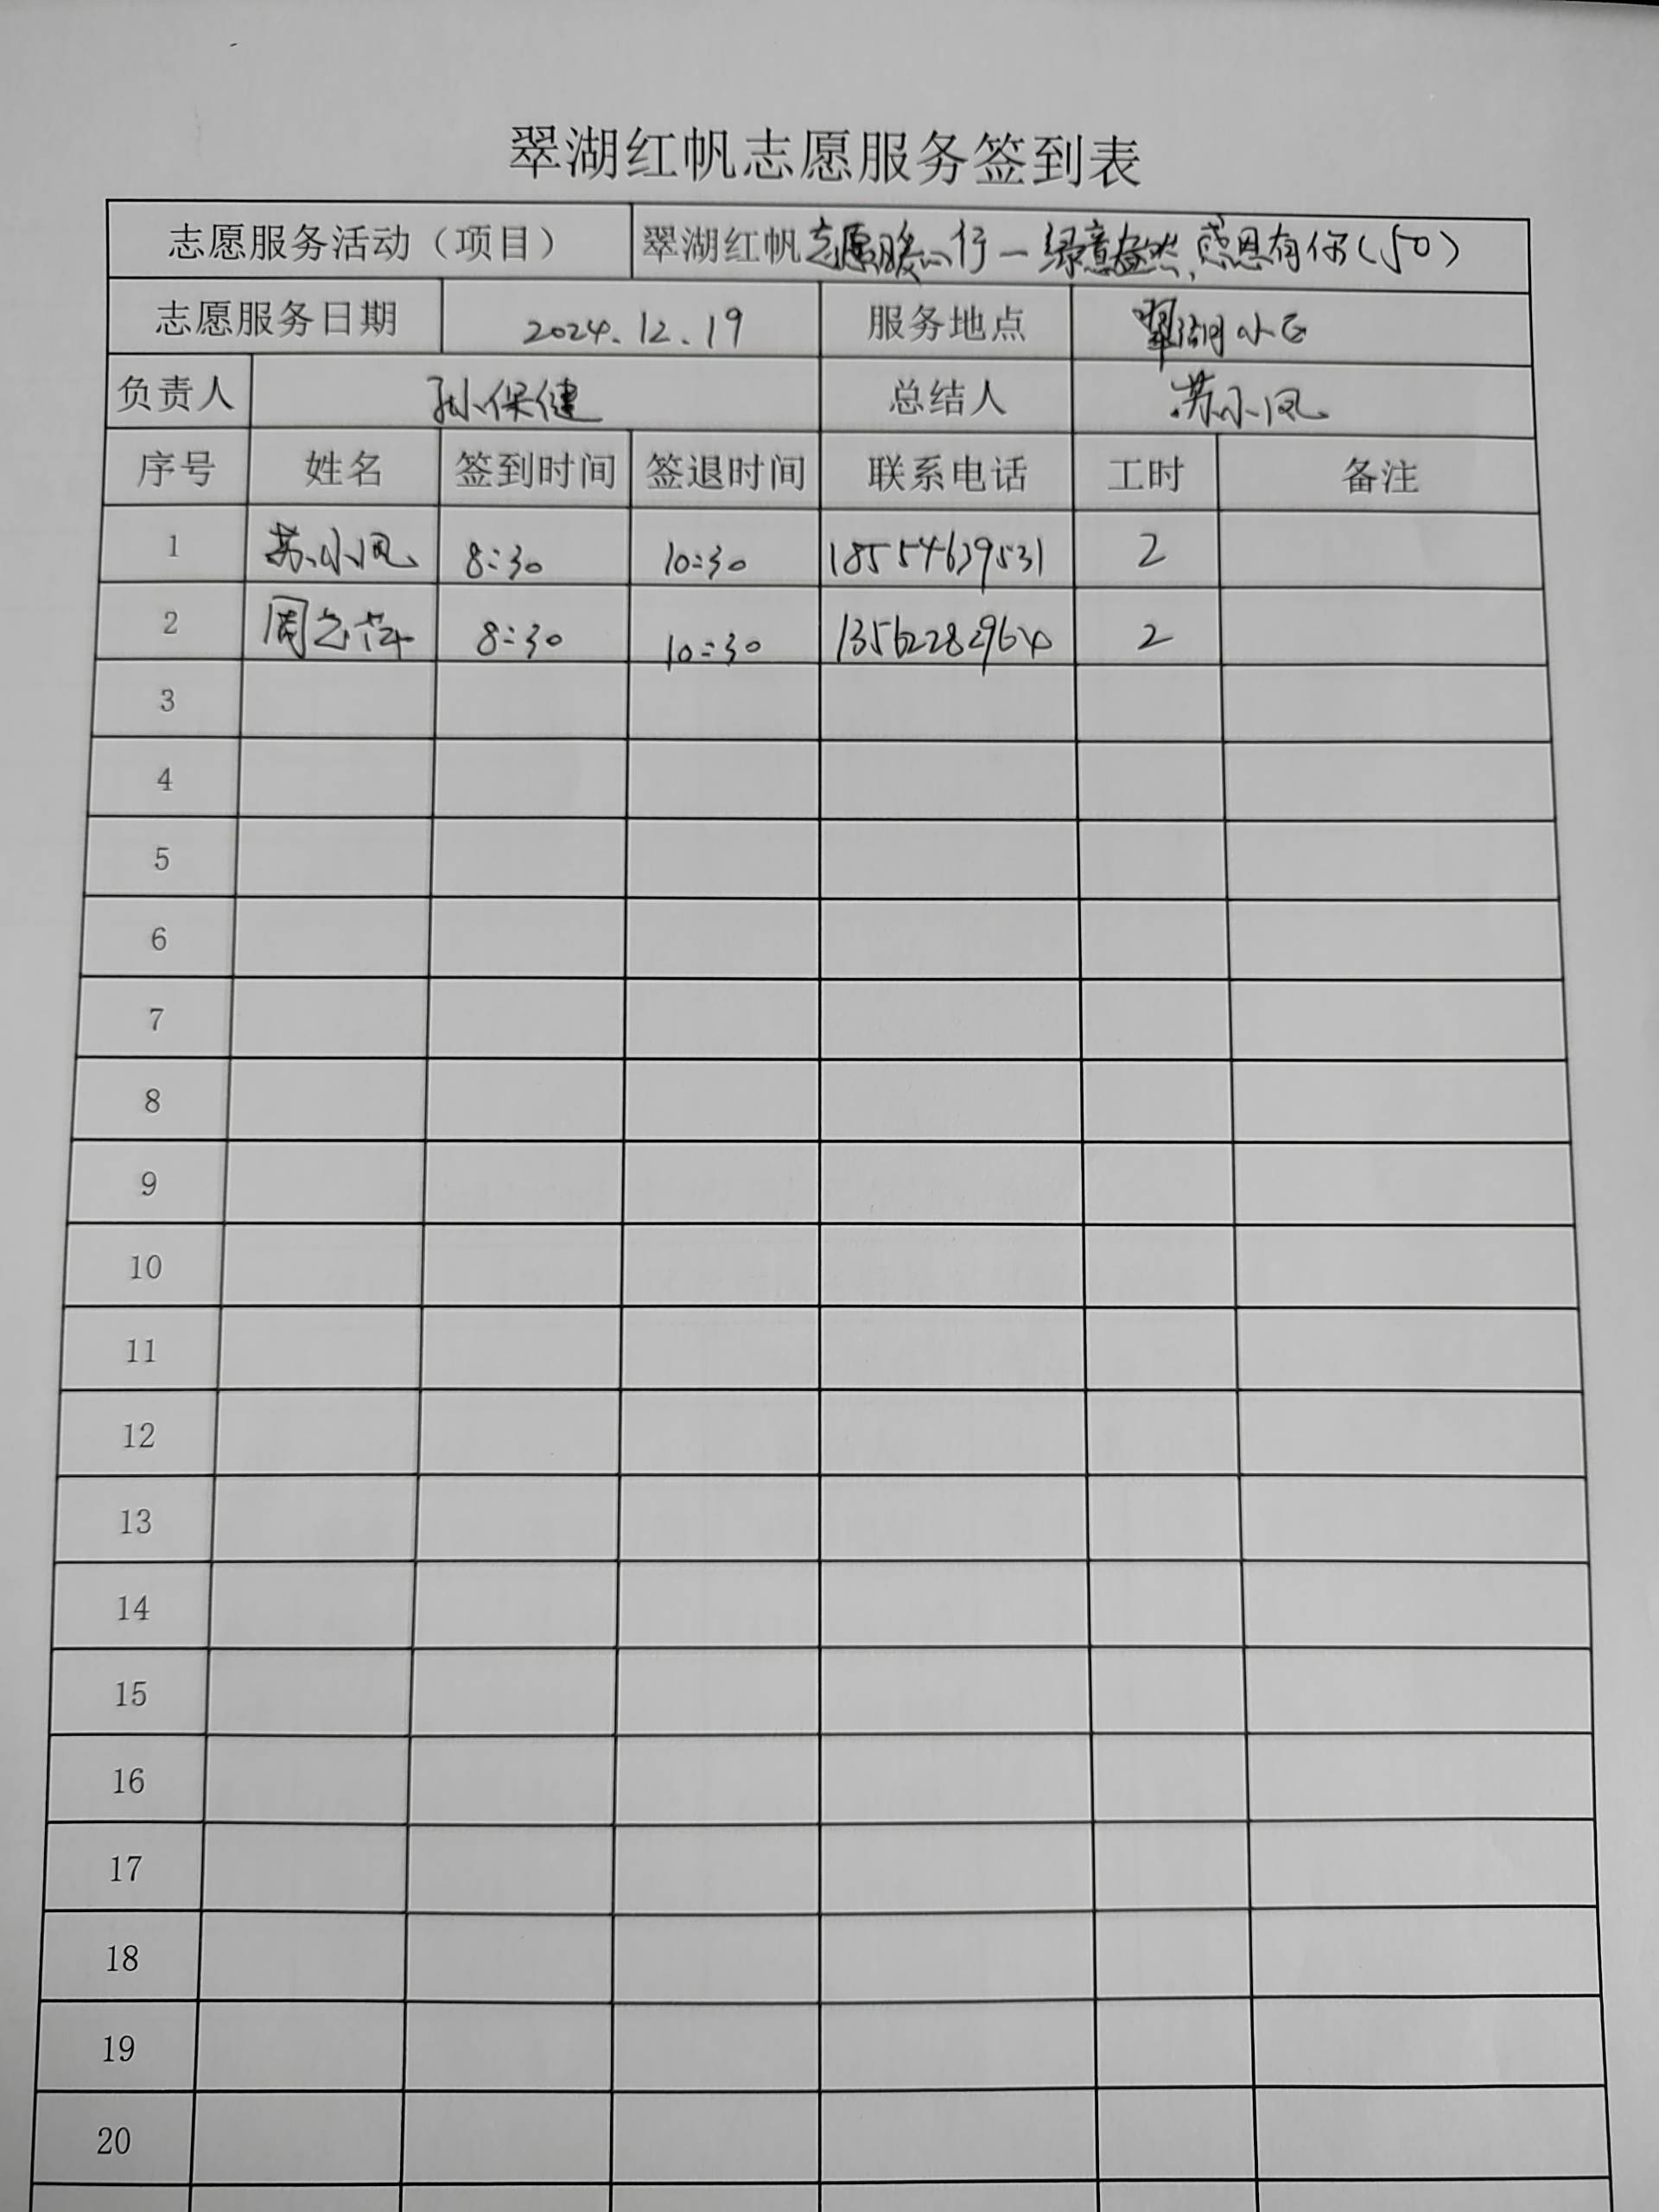 翠湖红帆志愿服务签到表
志愿服务活动（项目） 翠湖红帆志愿暖心行一绿意盎然,感恩有你(50)
志愿服务日期 2024.12.19 服务地点 翠湖小区
负责人 孙保健 总结人 苏小凤
序号 姓名 签到时间 签退时间 联系电话 工时 备注
1 苏小凤 8:30 10:30 18554639531 2
2 8:30 10:30 2
3
4
5
6
7
8
9
10
11
12
13
14
15
16
17
18
19
20